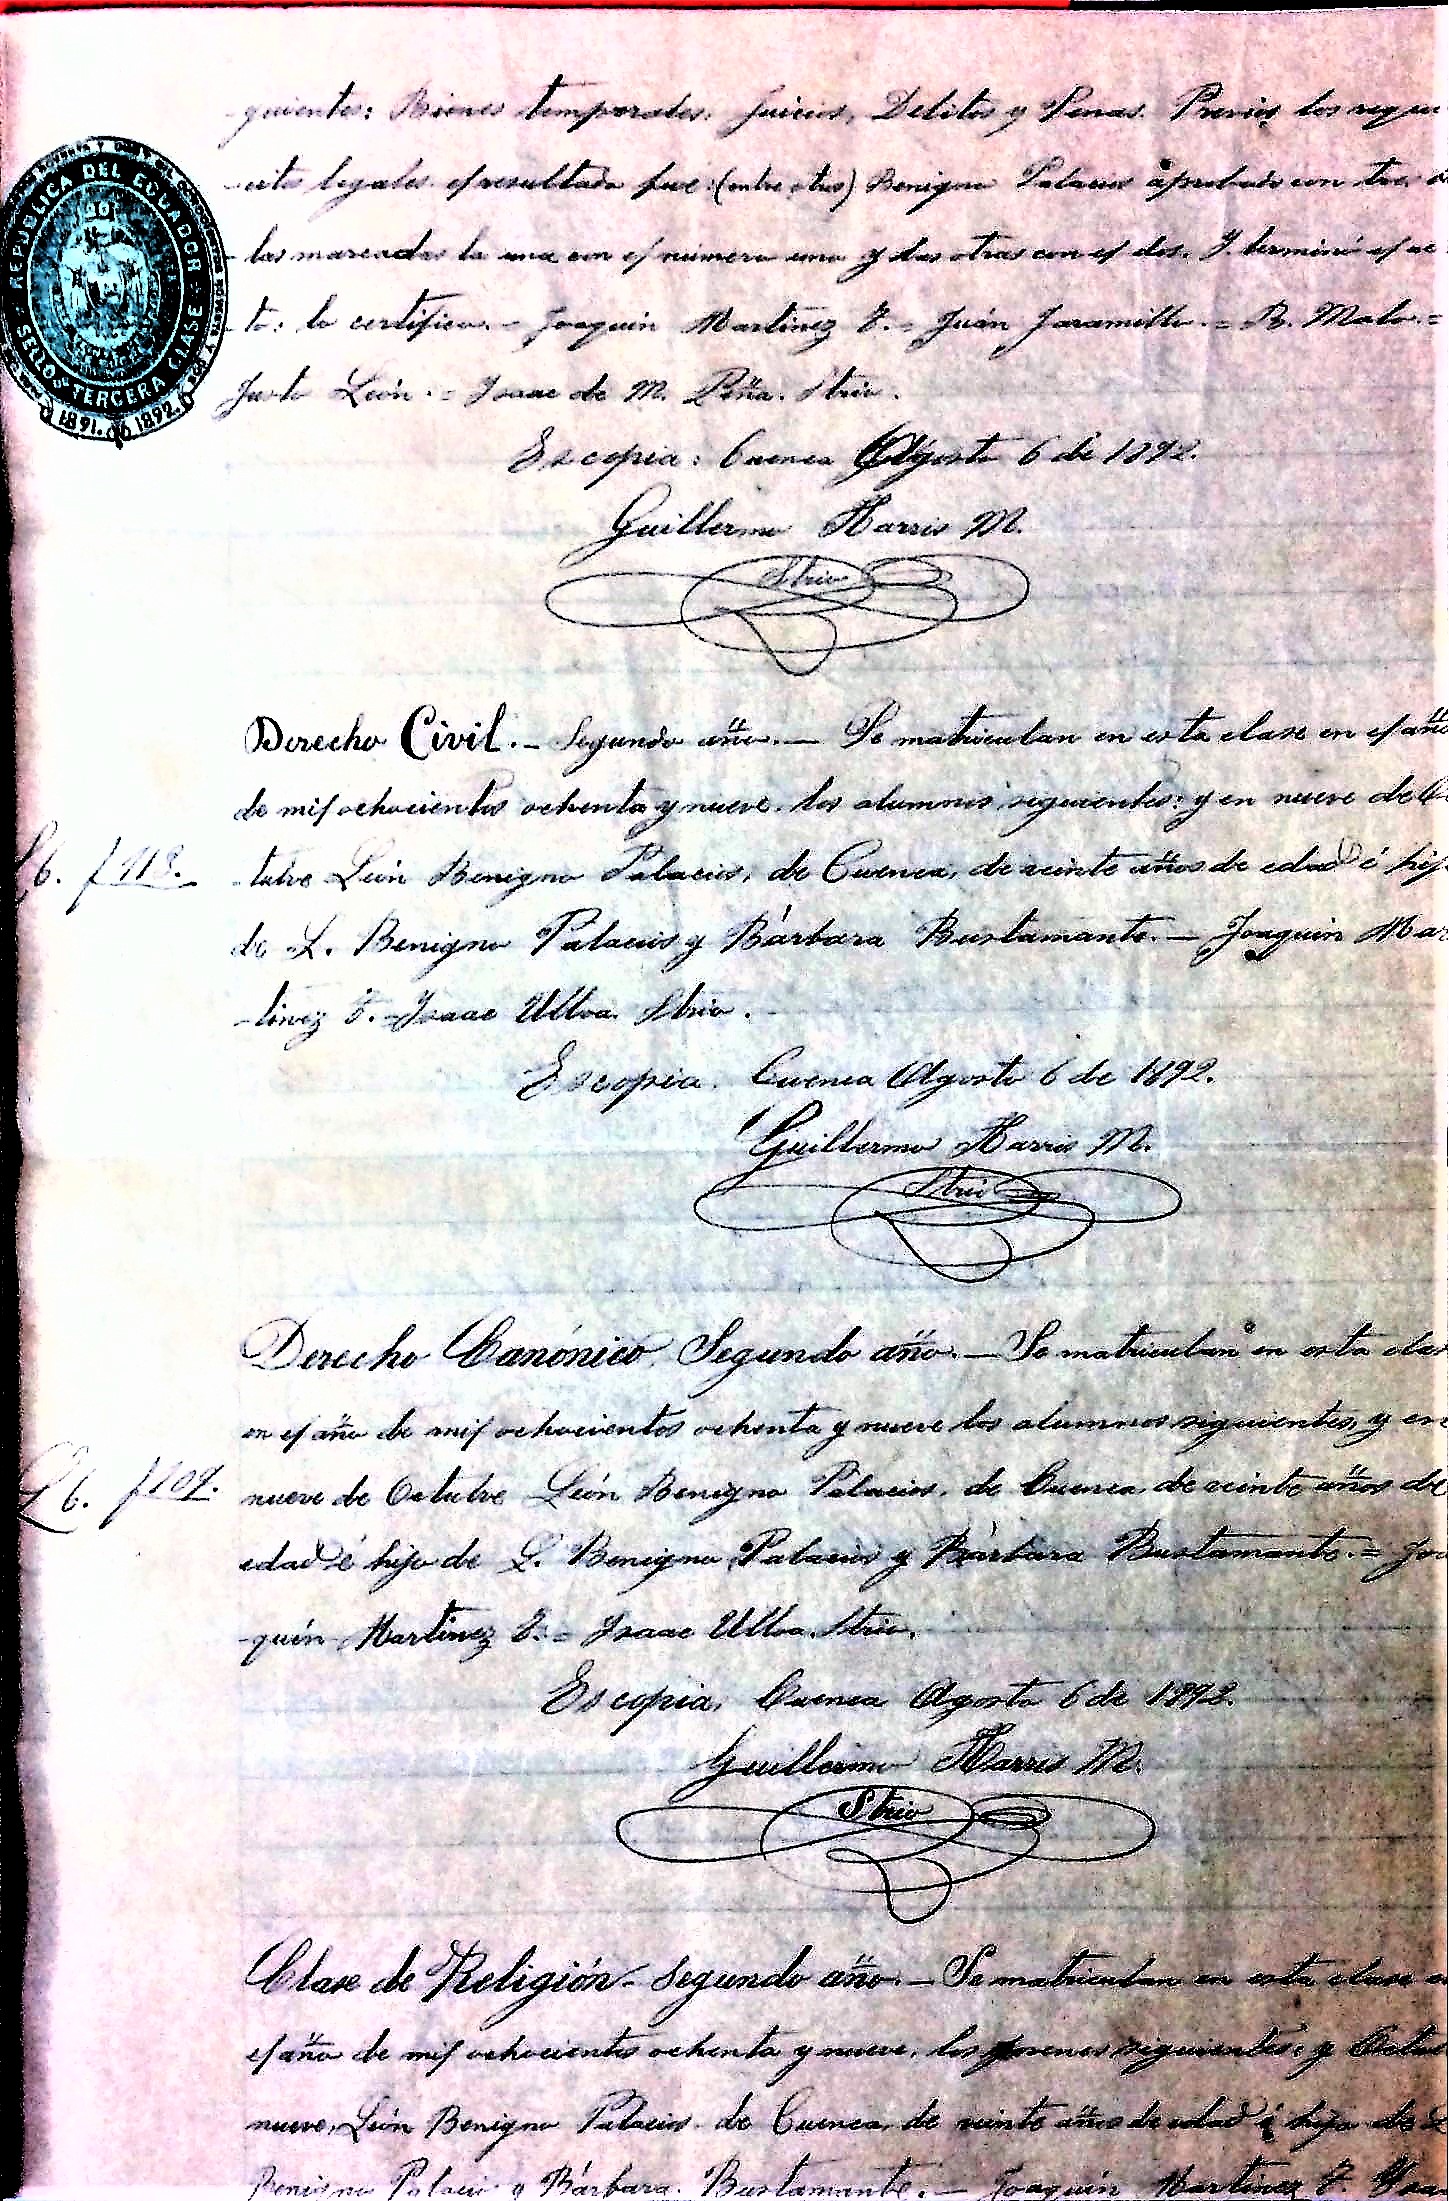 guientes: Bienes temporales. Juicios, Delitos y Penas. Previos los requi
-sitos legales el resultado fue: (entre otros) Benigno Palacios aprobado con tres
-las marcadas la una con el número uno y las otras con el dos. Y terminó el ac
-to: lo certifico. = Joaquín Martínez T. = Juán Jaramillo. = B. Malo. =
Justo León. = Isaac de M. Peña. Strio.
REPÚBLICA DEL ECUADOR
SELLO TERCERA CLASE
1891. 1892.
Es copia: Cuenca Agosto 6 de 1892.
Guillermo Harris M.
Strio
Derecho Civil. — Segundo año. — Se matriculan en esta clase en el año
de mil ochocientos ochenta y nueve los alumnos siguientes: y en nueve de Oc
L 6. f 118.
-tubre León Benigno Palacios, de Cuenca, de veinte años de edad é hijo
de L. Benigno Palacios y Bárbara Bustamante. — Joaquín Mar
-tínez T. = Isaac Ulloa. Strio.
Es copia. Cuenca Agosto 6 de 1892.
Guillermo Harris M.
Strio
Derecho Canónico. Segundo año. — Se matriculan en esta clas
en el año de mil ochocientos ochenta y nueve los alumnos siguientes, y en
L 6. f 109.
nueve de Octubre León Benigno Palacios, de Cuenca, de veinte años de
edad é hijo de L. Benigno Palacios y Bárbara Bustamante. = Joa
quín Martínez T. = Isaac Ulloa. Strio.
Es copia. Cuenca Agosto 6 de 1892.
Guillermo Harris M.
Strio
Clase de Religión — Segundo año. — Se matriculan en esta clase e
el año de mil ochocientos ochenta y nueve, los jovenes siguientes: y Octub
nueve, León Benigno Palacios de Cuenca, de veinte años de edad é hijo de L
Benigno Palacio y Bárbara Bustamante. — Joaquín Martínez T. Isaa